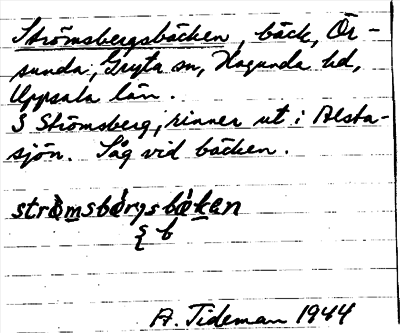 Strömsbergsbäcken, bäck, Ör-
sunda, Gryta sn, Hagunda hd,
Uppsala län.
S Strömsberg, rinner ut i Alsta-
sjön. Såg vid bäcken.
strömsbärgsbäkän
ξ b
A. Tideman 1944